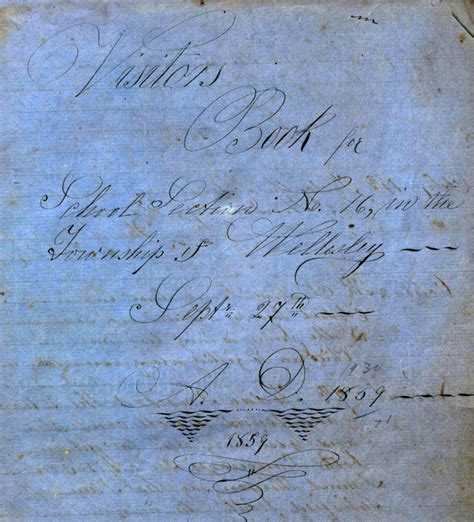 Visitors
Book for
School Section No. 16, in the
Township of Wellesley
Septr. 27th
A. D. 1859
1930
71
1859